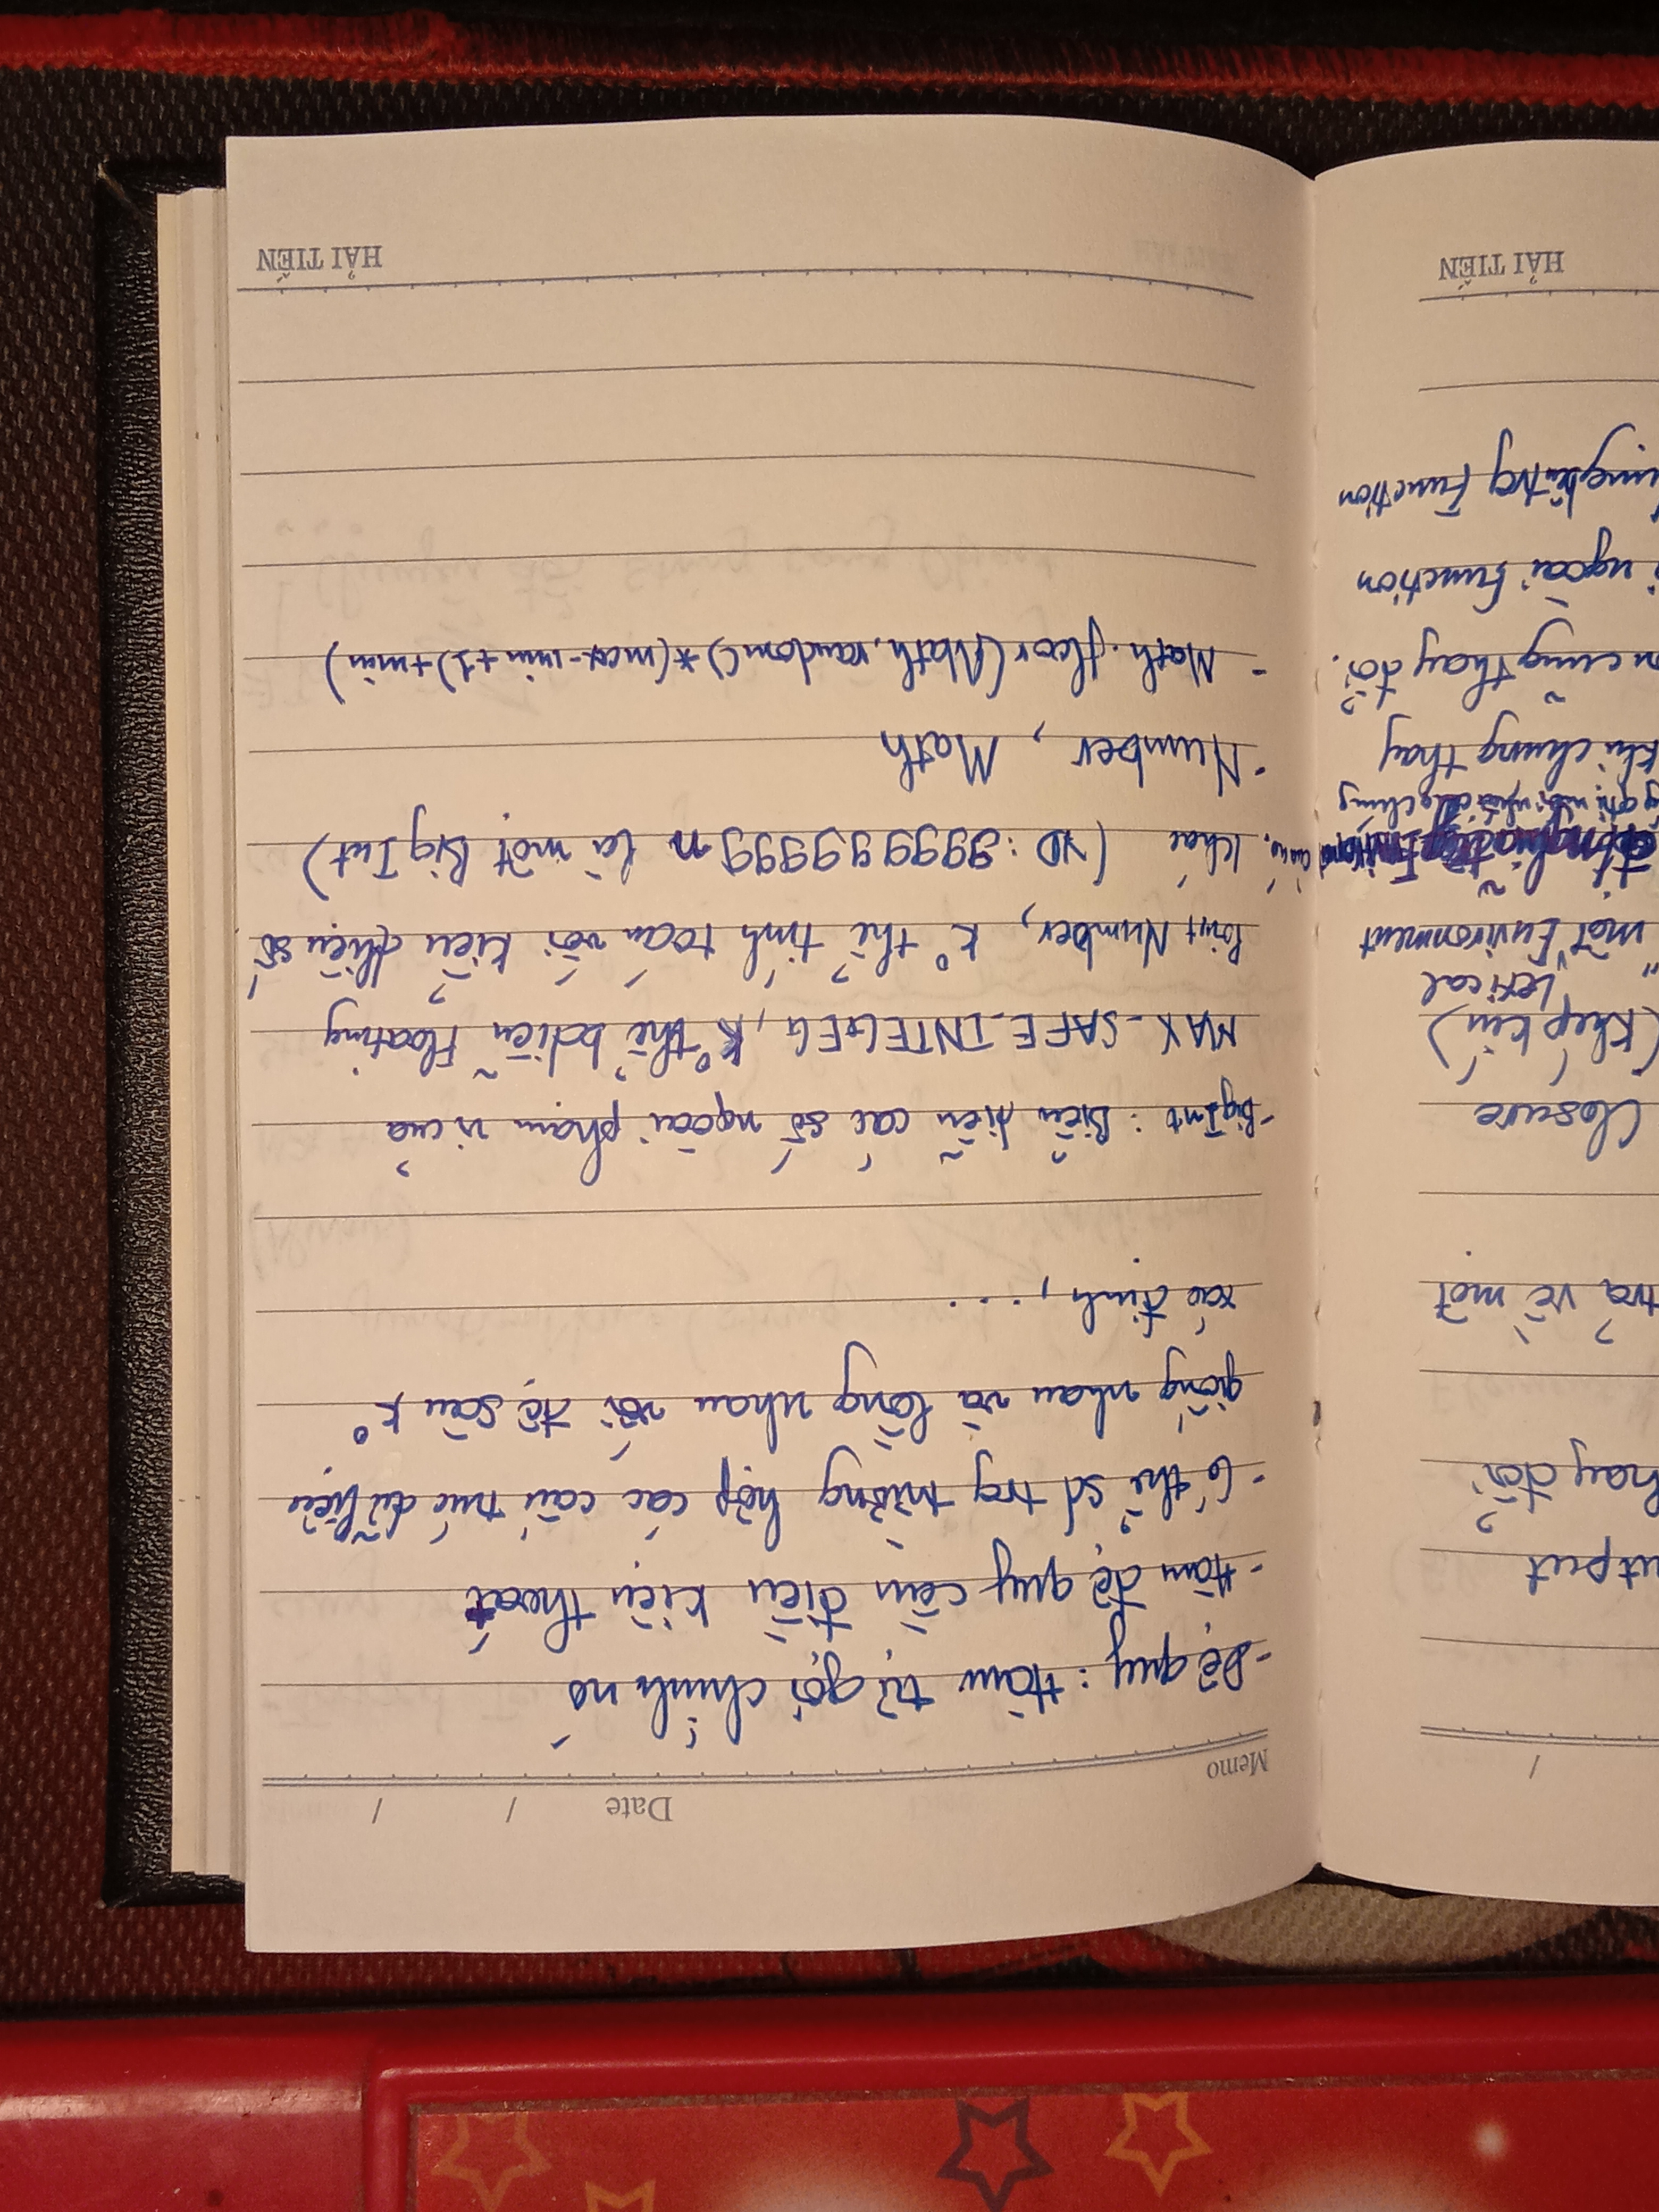 /
utput
hay đổi
trả về một
Closure
(Khép kín)
Lexical
một Environment
của nó.
chúng
khi chúng thay
cũng thay đổi.
ngoài Function
bên trg Function
HẢI TIẾN
Memo
Date / /
- Đệ quy : Hàm tự gọi chính nó
- Hàm đệ quy cần điều kiện thoát
- Có thể sd trg trường hợp các cấu trúc dữ liệu
giống nhau và lồng nhau với độ sâu k°
xác định, ...
- BigInt : Biểu diễn các số ngoài phạm vi của
MAX_SAFE_INTEGEG, K° thể bdiễn Floating
Point Number, k° thể tính toán với kiểu dliệu số
khác (VD : 999999999n là một BigInt)
- Number, Math
- Math.floor(Math.random()*(max-min+1)+min)
HẢI TIẾN